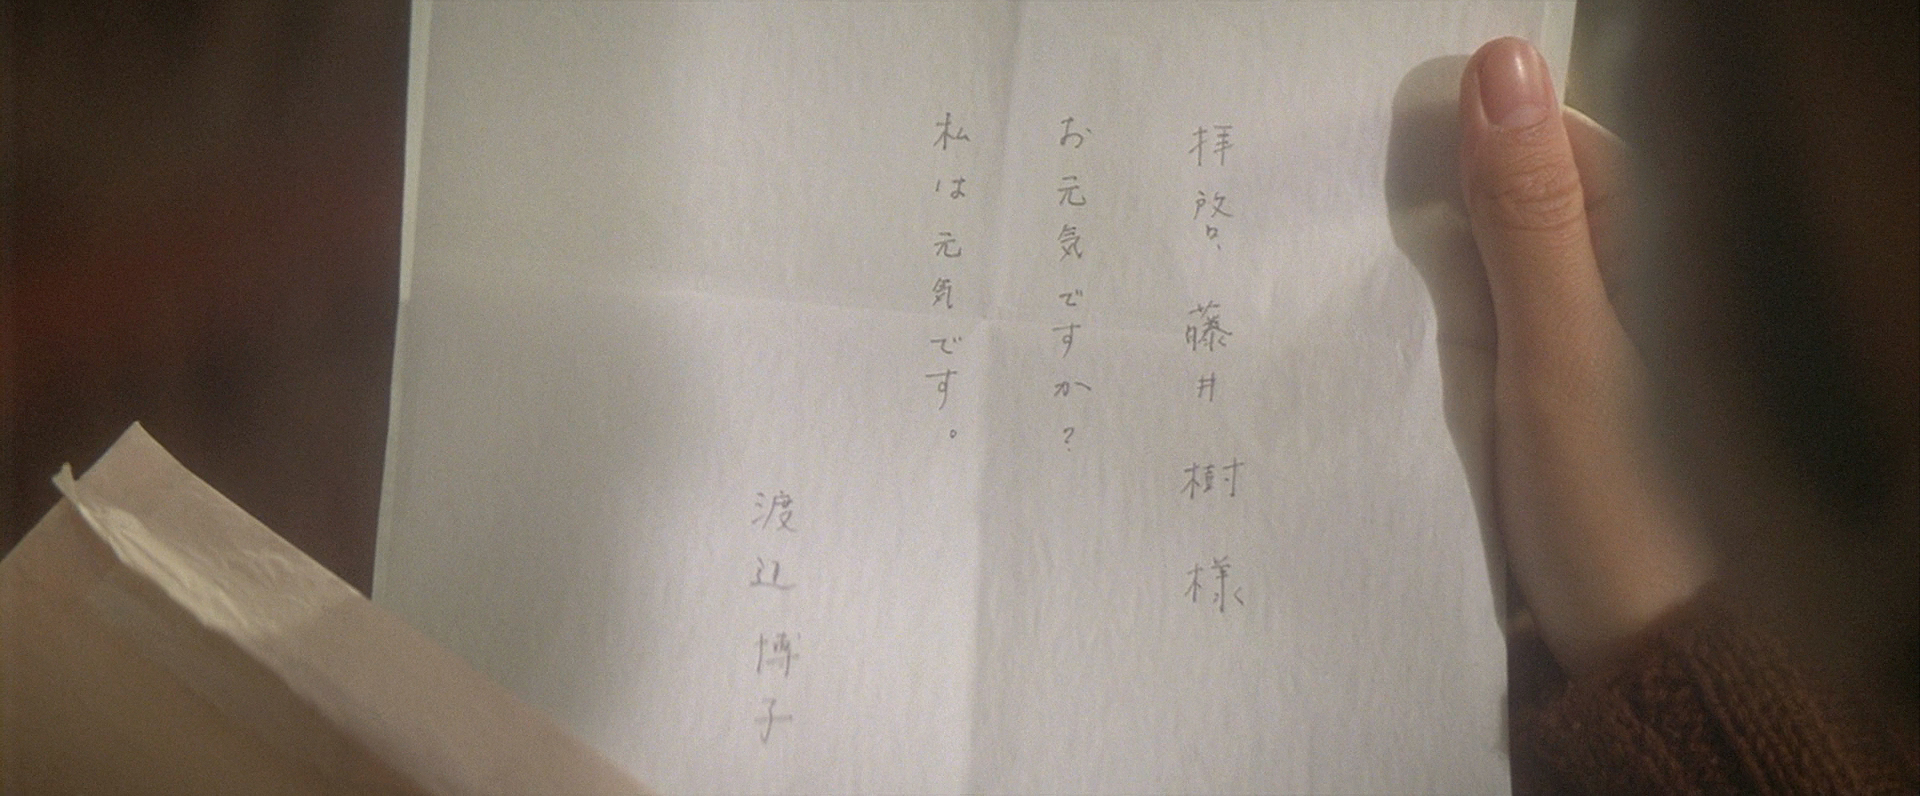 拝啓 藤井 樹 様
お元気ですか?
私は元気です。
渡辺博子